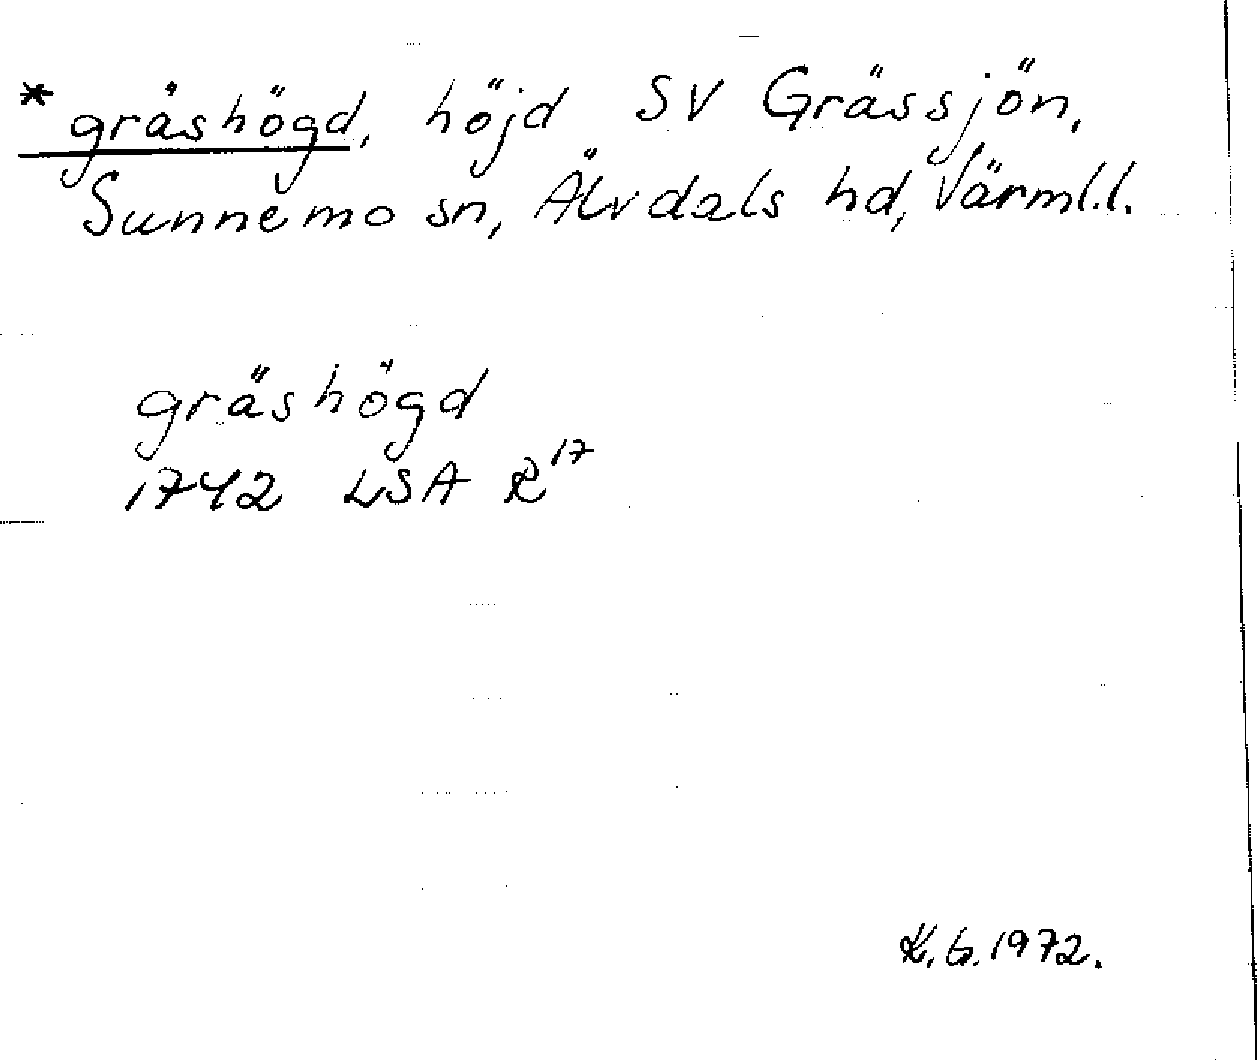 *gräshögd, höjd SV Grässjön,
Sunnemo sn, Älvdals hd, Värml.l.
gräshögd
1742 LSA R17
K.G.1972.